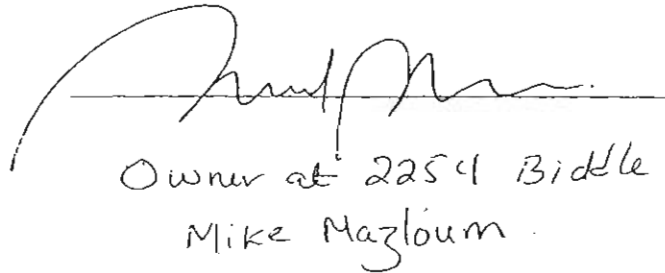 Owner at 2254 Biddle
Mike Mazloum